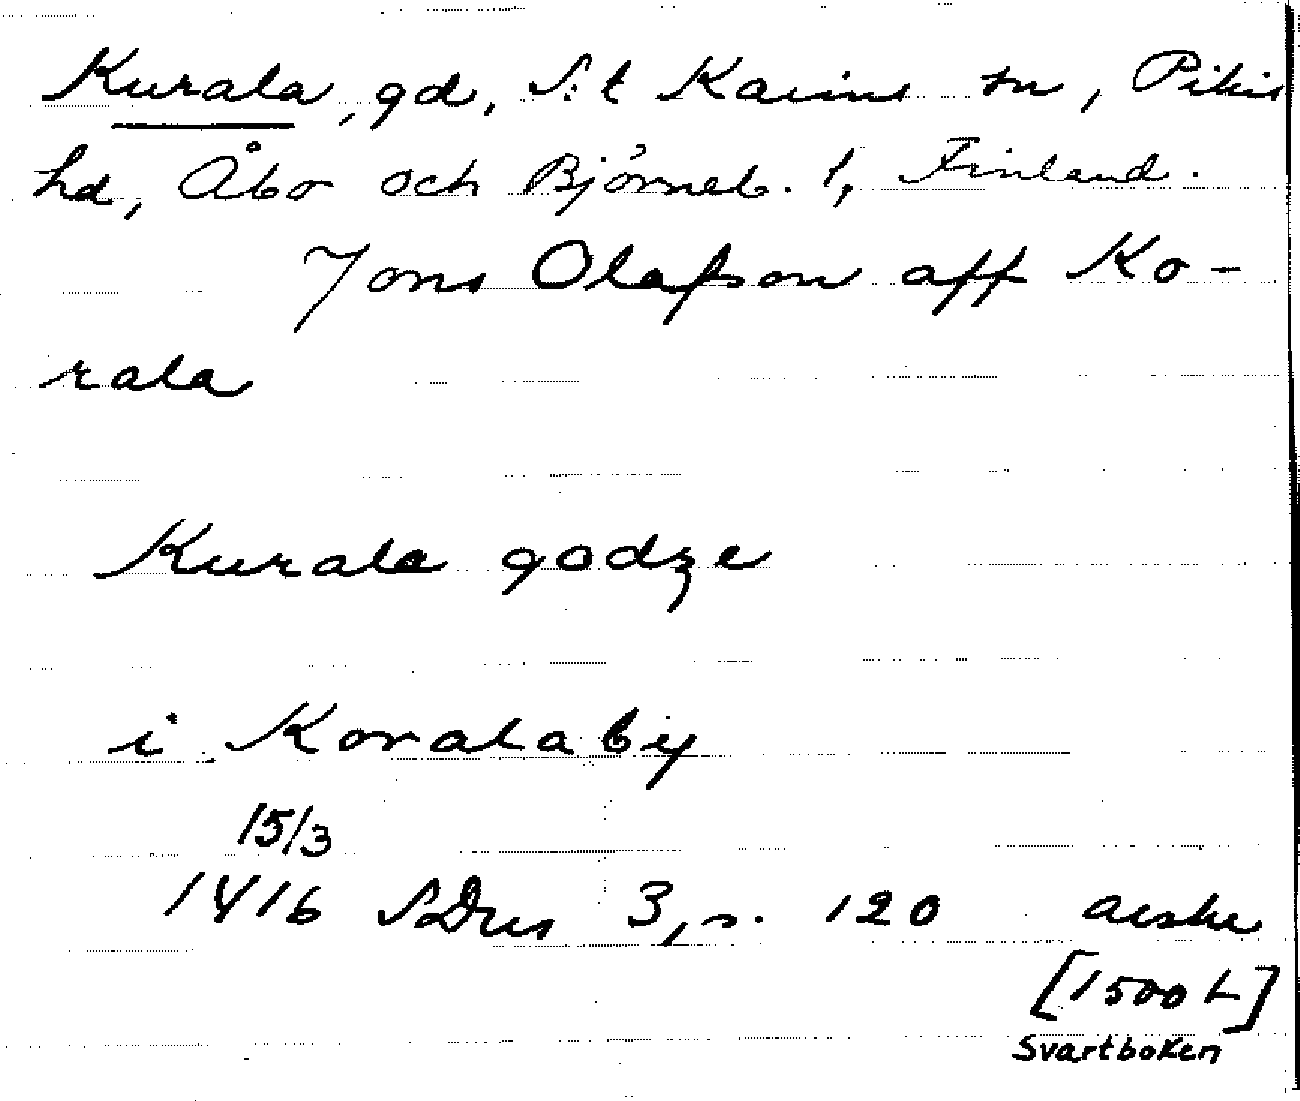 Kurala, gd, S:t Karins sn, Pikis
hd, Åbo och Björneb. l, Finland.
Jons Olafson aff Ko-
rala
Kurala godze
i Korala by
15/3
1416 SDns 3, s. 120 avskr
[1500 t]
Svartboken